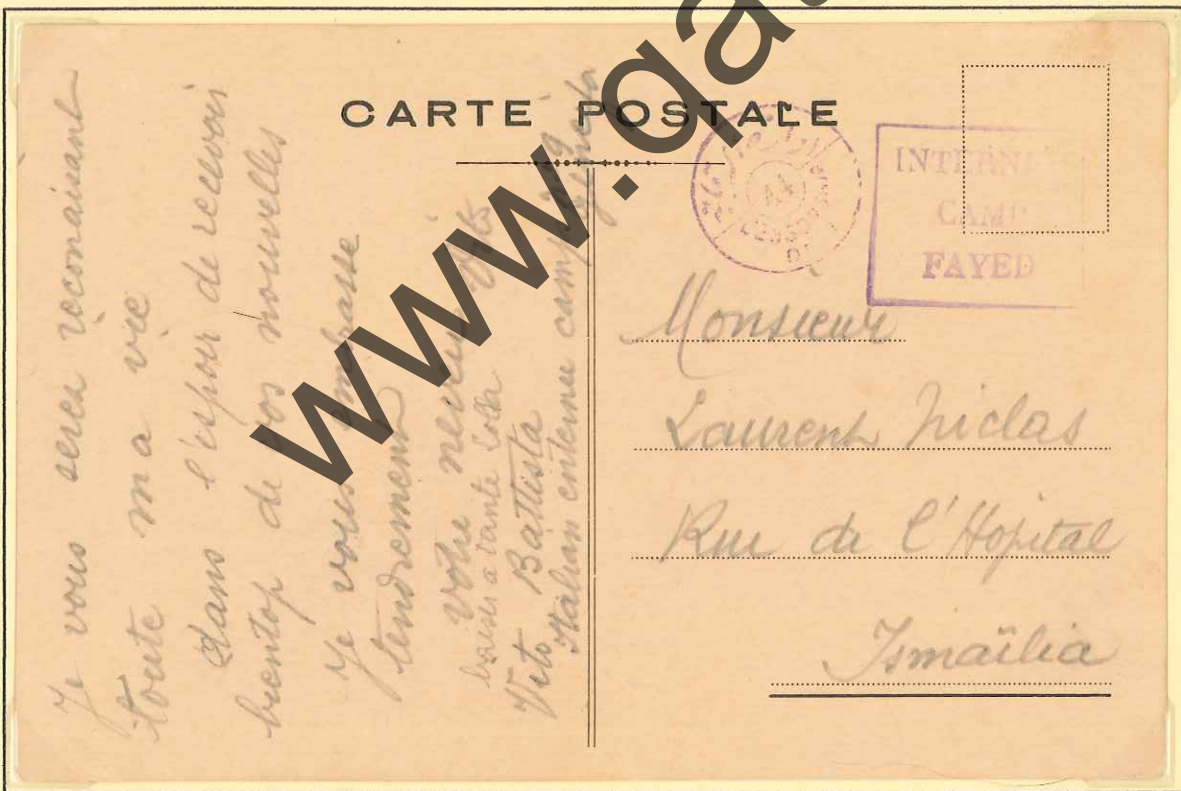 www.ga
CARTE POSTALE
INTERN
CAMP
FAYED
44
Je vous serea reconnaissant
toute ma vie
dans l'espoir de recevoir
bientop de vos nouvelles
Je vous embrasse
tendrement
votre neveu Vito
baises a tante Lola
Vito Battista
Italian enternee camp
Monsieur
Laurent Niclas
Rue de l'Hopital
Ismaïlia